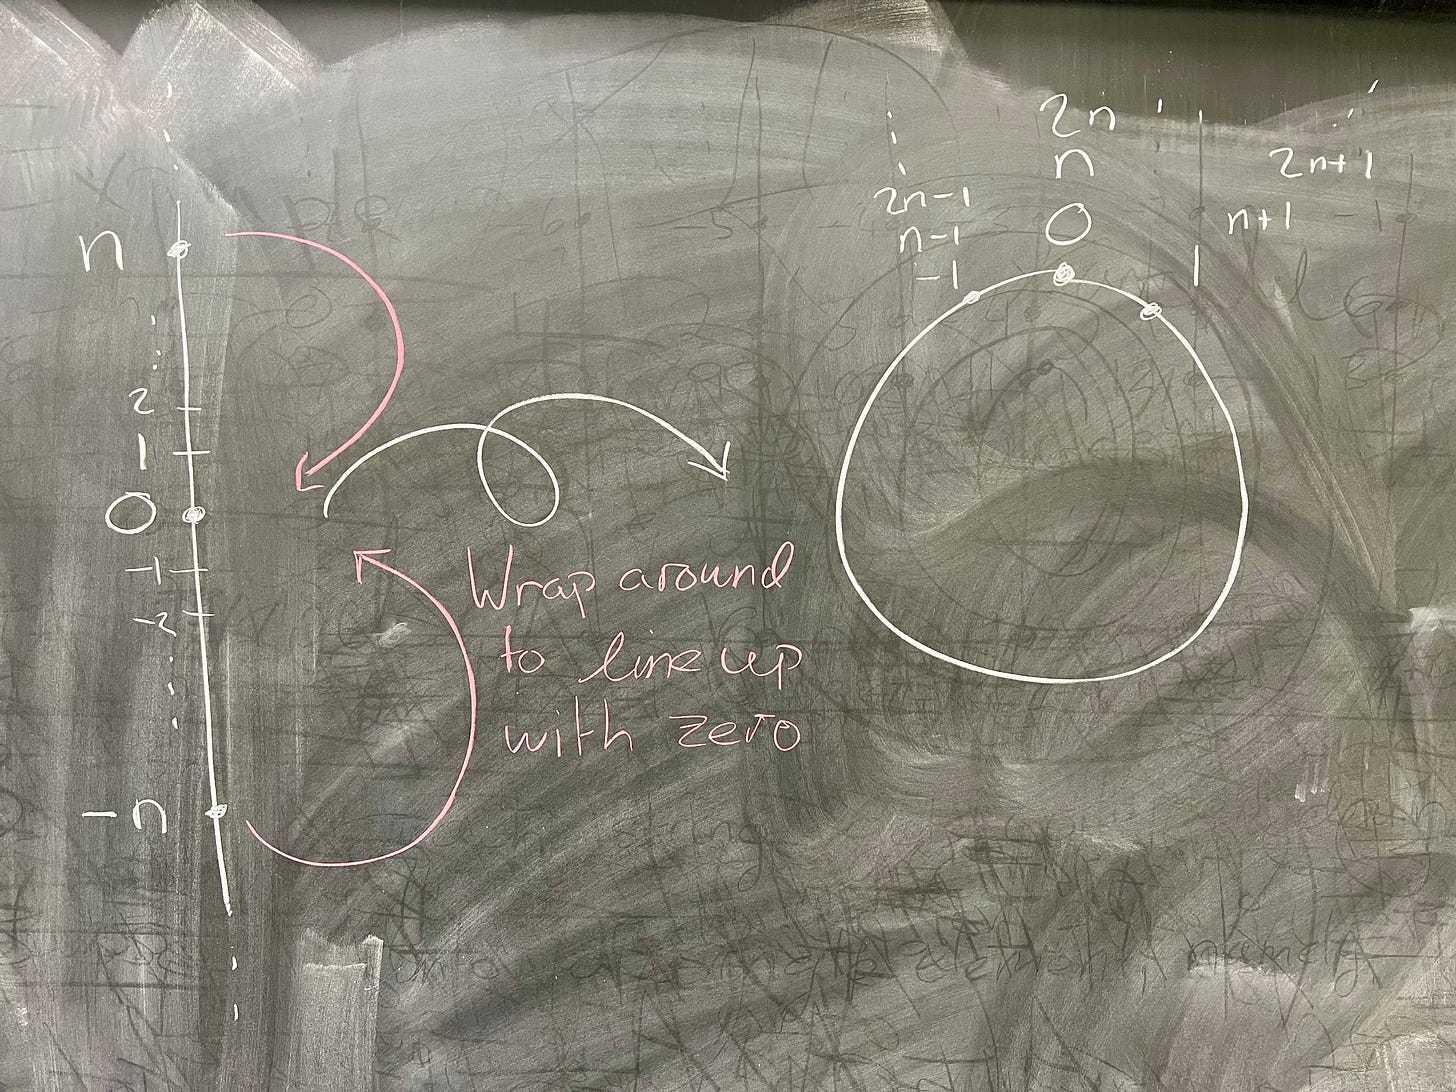 n
2
1
0
-1
-2
-n
Wrap around
to line up
with zero
2n
n
2n+1
2n-1
0
n+1
n-1
-1
1
namely